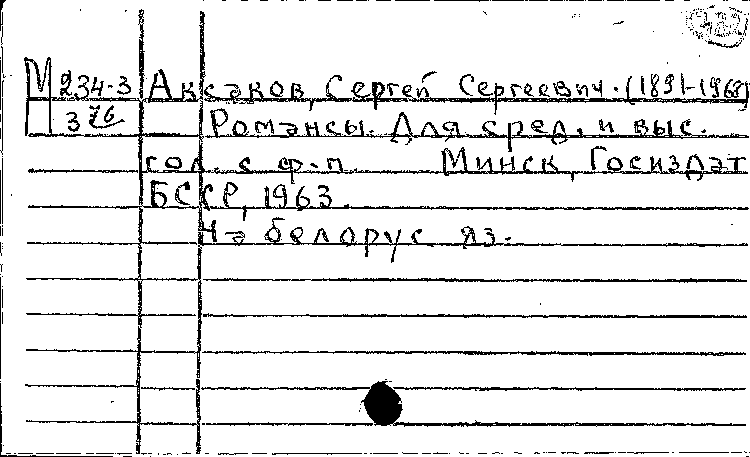 М 234-3 Аксаков, Сергей Сергеевич. (1891-1968)
376 Романсы. Для сред. и выс.
гол. с ф-п. Минск, Госиздат
БССР, 1963.
На белорус. яз.